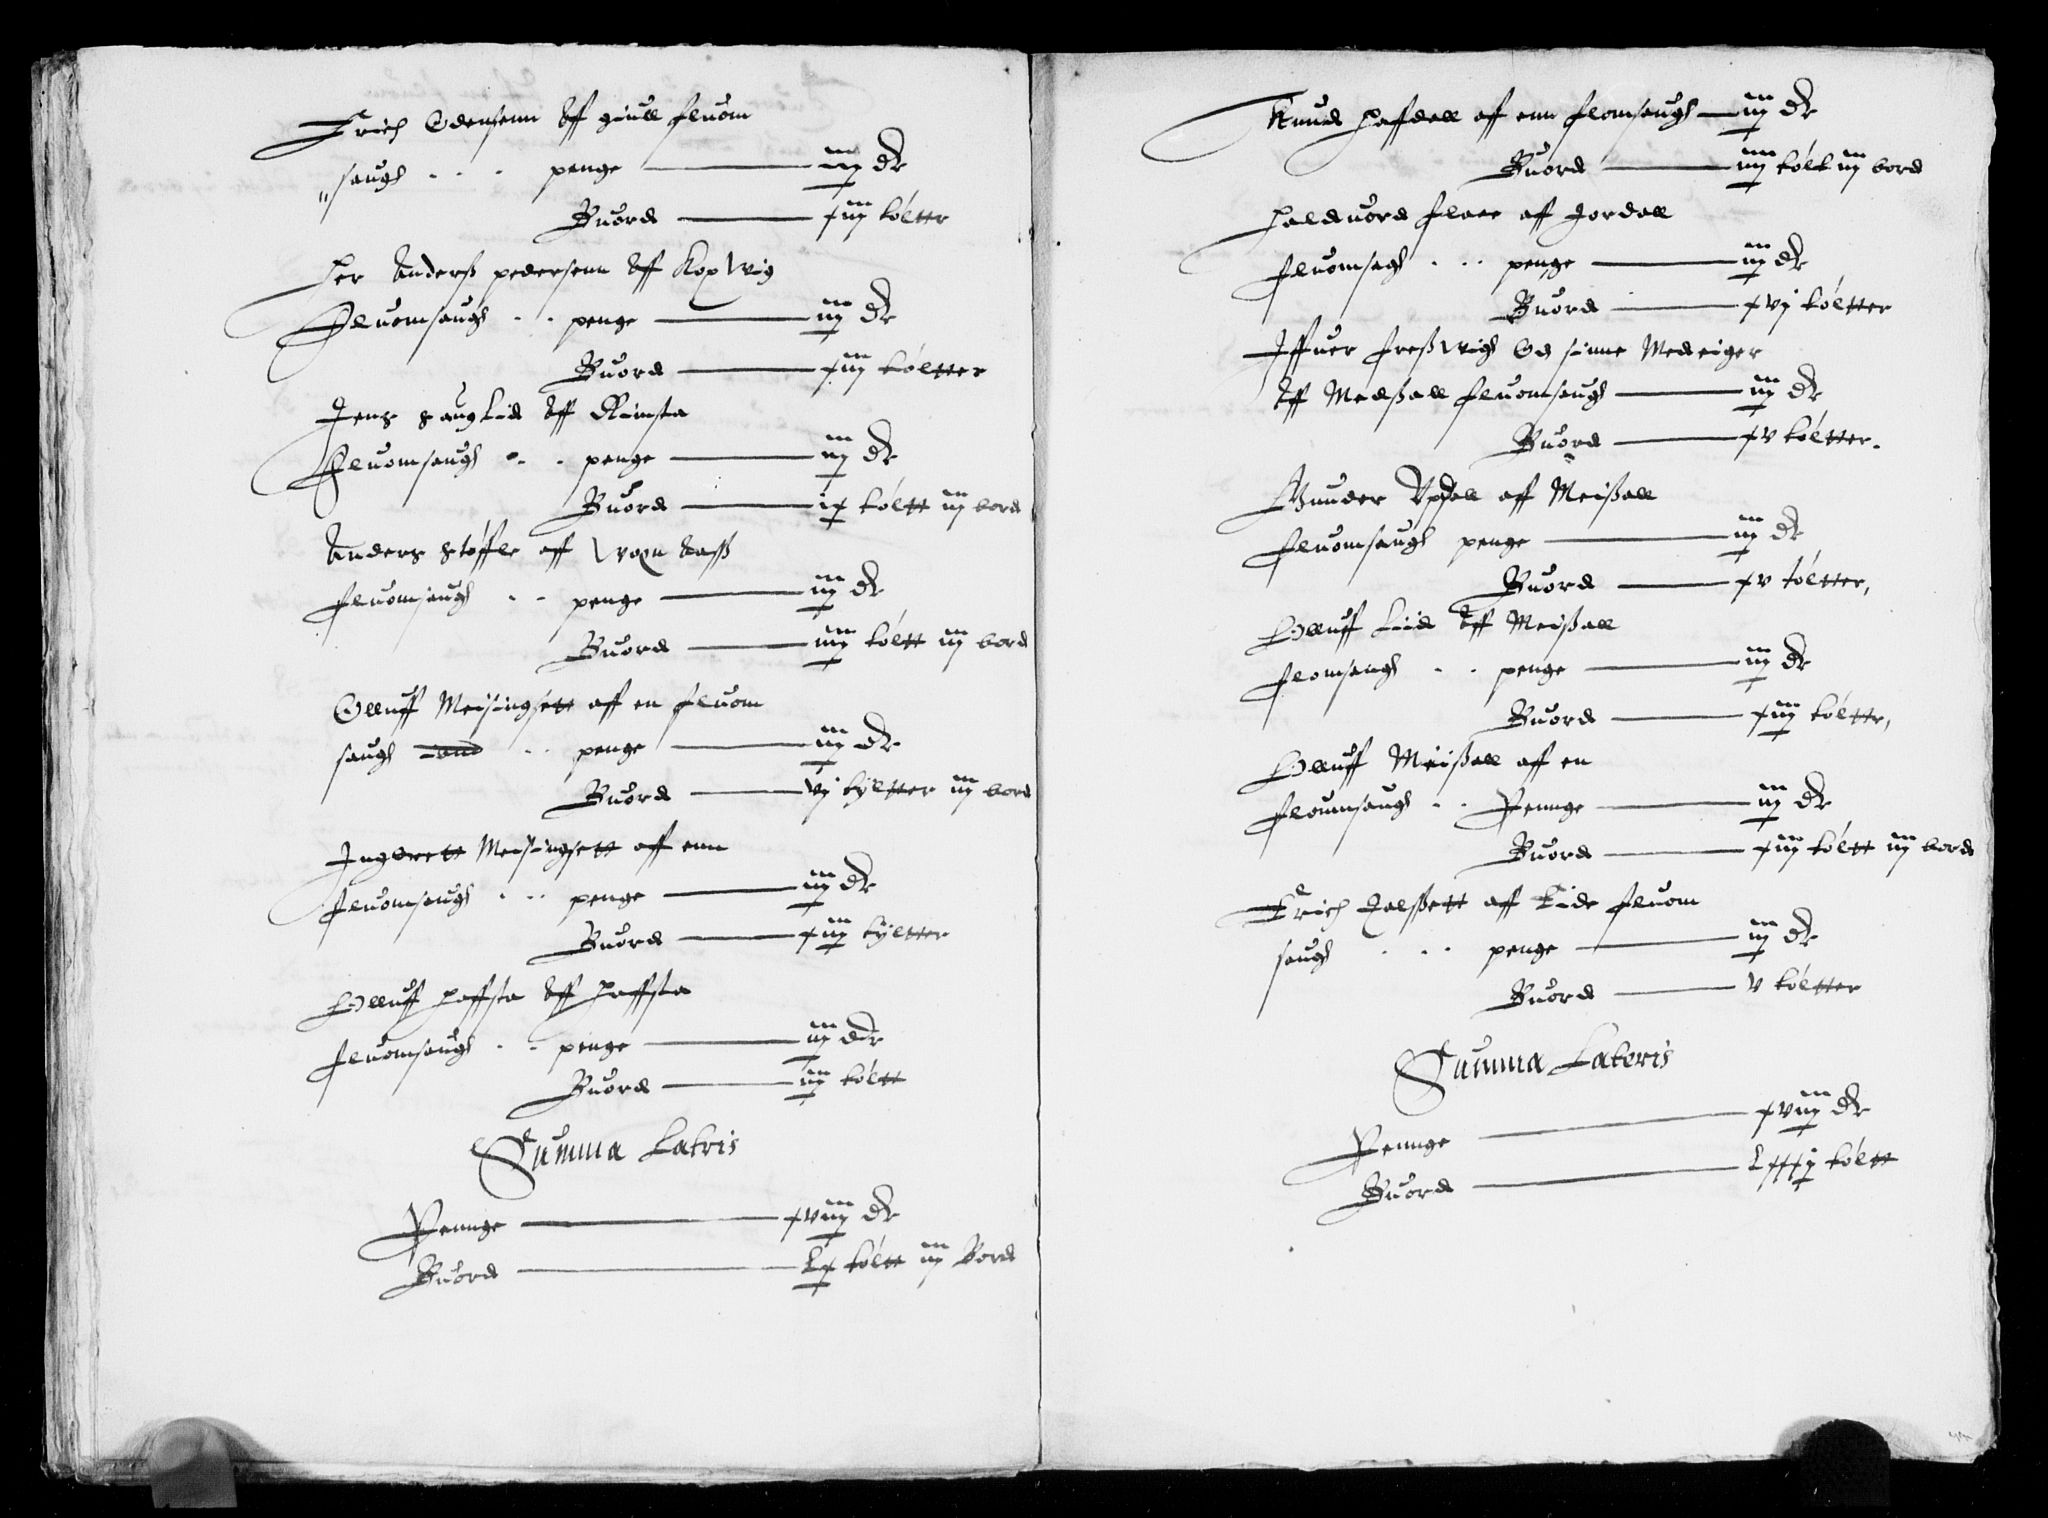 Erich Odensenn Aff giull fluom
saugh . . . penge — iij dr
Buord — xiij tôltter
Her Anderß pedersenn Aff Kopwig
Fluomsaugh . . penge — iij dr
Buord — xiij tôltter
Jens hauglid Aff Rimsta
Fluomsaugh . . penge — iij dr
Buord — ix tôltt iij bord
Anders stôffle aff
fluomsaugh . . penge — iij dr
Buord — iiij tôltt iij bord
Olluff Meisingsett aff en fluom
saugh . . penge — iij dr
Buord — vj tyltter iij bord
Ingbrett Meisingsett aff enn
fluomsaugh . . . penge — iij dr
Buord — xiij tyltter
Olluff Haffsta Aff Haffsta
fluomsaugh . . penge — iij dr
Buord — iij tôltt
Summa Latris
Pennge — xviij dr
Buord — Lx tôltt iij Bord
Knud Haffdall aff enn flomsaugh — iij dr
Buord — iiij tôltt iij bord
Halduord flaee aff Jordall
fluomsagh . . . penge — iij dr
Buord — xvj tôltter
Iffuer freßwigh Og sinne Medeiger
Aff Medßall fluomsaugh — iij dr
Buord — xv tôltter.
Gunder Updall aff Meißall
fluomsaugh penge — iij dr
Buord — xv tôltter,
Olluff Liid Aff Meißall
flomsaugh . . penge — iij dr
Buord — xiij tôltter,
Olluff Meißall aff en
floumsaugh . . Pennge — iij dr
Buord — xiij tôltt iij bord
Erich Jalßett aff Lide fluom
saugh . . . penge — iij dr
Buord — v tôltter
Summa Lateris
Pennge — xviij dr
Buord — Lxxxj tôltt